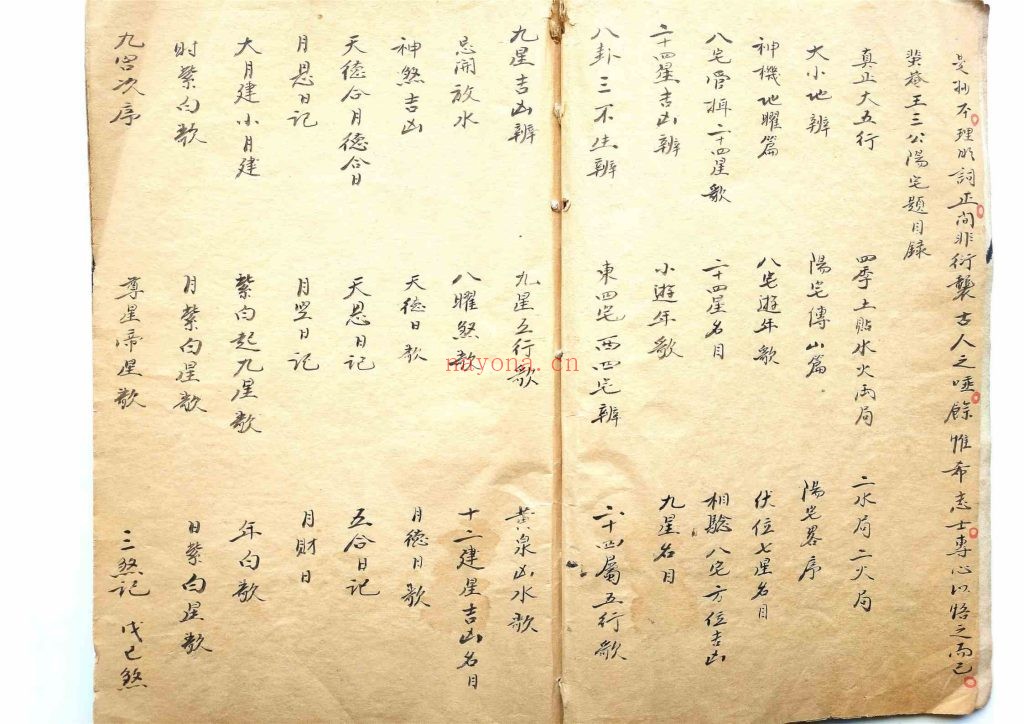 是抄本理明詞正間非衍襲古人之唾餘惟希志士專心以悟之而已
王三公陽宅題目録
真止大五行 四季土貼水火兩局 二水局二火局
大小地辨 陽宅傳山篇 陽宅畧序
神機地曜篇 八宅遊年歌 伏位七星名目
八宅管辖二十四星歌 二十四星名目 相驗八宅方位吉凶
二十四星吉凶辨 小遊年歌 九星名目
八卦三不生辨 東四宅西四宅辨 二十四屬五行歌
九星吉凶辨 九星五行歌 黄泉凶水歌
忌開放水 八曜煞歌 十二建星吉凶名目
神煞吉凶 天德日歌 月德日歌
天德合月德合日 天恩日記 五合日記
月恩日記 月空日記 月財日
大月建小月建 紫白起九星歌 年白歌
时紫白歌 月紫白星歌 日紫白星歌
九宮次序 尊星帝星歌 三煞記 戊己煞
nuyona.cn